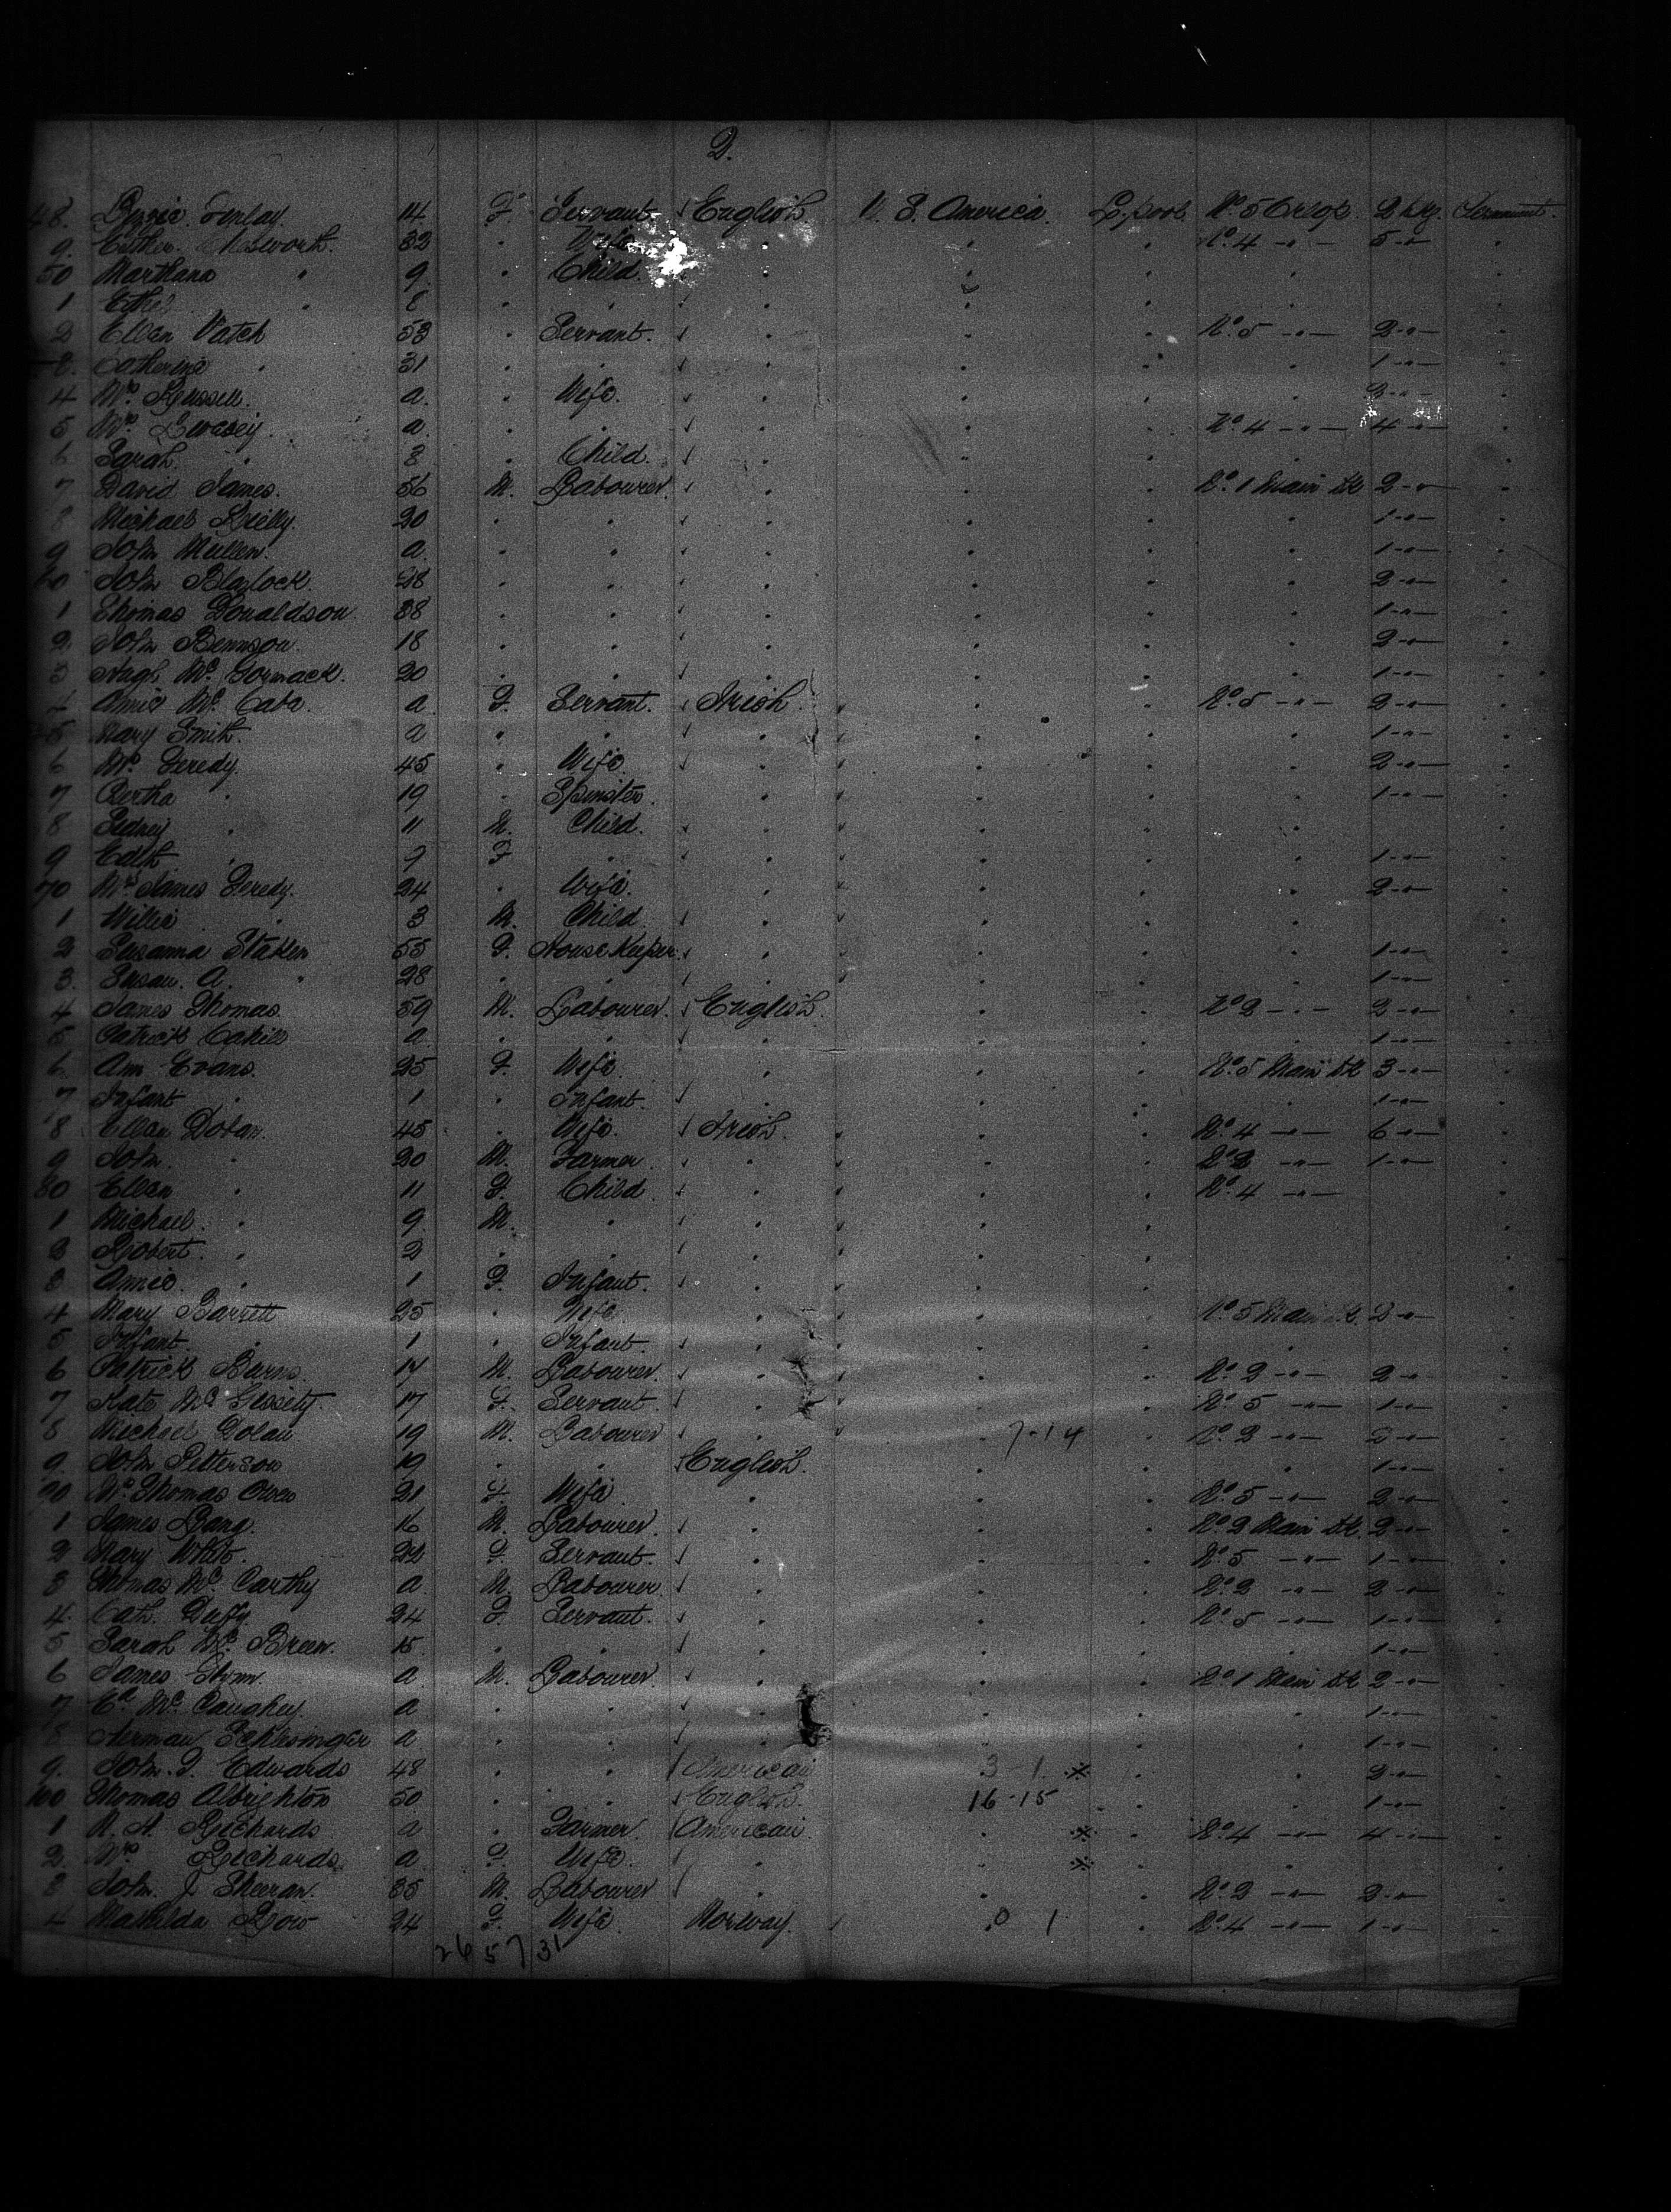 2.
48. Lizzie Finlay. 14 F Servant English U. S. America. L.pool. No. 5 Orlop 2 bdg. Permanent.
9. Esther Molsworth. 32 " Wife " " " No. 4 -"- 5 -"- "
50 Marthana " 9 " Child. " " " " "
1 Ethel " 8 " " " " " " "
2 Ellen Vatch 53 " Servant. " " " No. 5 -"- 2 -"- "
3. Catherine " 31 " " " " " " 1 -"- "
4 Mrs. Russell. a. " Wife. " " " " 3 -"- "
5 Mrs. Swasey. a. " " " " " No. 4 -"- 4 -"- "
6 Sarah. " 8 " Child. " " " " "
7 David James. 56 M. Labourer. " " " No. 1 Main dk 2 -"- "
8 Michael Reilly. 20 " " " " " " 1 -"- "
9 John Mullen. a. " " " " " " 1 -"- "
60 John Blalock. 28 " " " " " " 2 -"- "
1 Thomas Donaldson. 38 " " " " " " 1 -"- "
2. John Bennson. 18 " " " " " " 2 -"- "
3 Hugh Mc. Gormack. 20 " " " " " " 1 -"- "
4 Annie Mc. Cabe. a F. Servant. Irish. " " No. 5 -"- 2 -"- "
5 Mary Smith. a " " " " " " 1 -"- "
6 Mrs. Feredy. 45 " Wife " " " " 2 -"- "
7 Bertha " 19 " Spinster. " " " " 1 -"- "
8 Sidney " 11 M. Child. " " " " "
9 Edith " 9 F " " " " " 1 -"- "
70 Mrs. James Feredy. 24 " Wife. " " " " 2 -"- "
1 Willie " 3 M. Child. " " " " "
2 Susanna Staken 55 F. House Keeper. " " " " 1 -"- "
3. Susan. A. " 28 " " " " " " 1 -"- "
4 James Thomas. 59 M. Labourer. English. " " No. 2 -"- 2 -"- "
5 Patrick Cahill a. " " " " " " 1 -"- "
6. Ann Evans. 25 F. Wife. " " " No. 5 Main dk 3 -"- "
7 Infant " 1 " Infant. " " " " 1 -"- "
8 Ellen Dolan. 45 " Wife. Irish. " " No. 4 -"- 6 -"- "
9 John. " 20 M. Farmer. " " " No. 2 -"- 1 -"- "
80 Ellen " 11 F. Child. " " " No. 4 -"- "
1 Michael. " 9 M. " " " " "
2 Robert. " 2 " " " " " "
3 Annie. " 1 F. Infant. " " " "
4 Mary Barrett 25 " Wife. " " " No. 5 Main dk. 2 -"- "
5 Infant. " 1 " Infant. " " " " "
6 Patrick Burns. 17 M. Labourer. " " " No. 2 -"- 2 -"- "
7 Kate Mc. 17 F. Servant. " " " No. 5 -"- 1 -"- "
8 Michael Dolan 19 M. Labourer " 7-14 " No. 2 -"- 2 -"- "
9. John Petterson 19 " " English. " " " 1 -"- "
90 Mrs. Thomas Owen 21 F. Wife " " " No. 5 -"- 2 -"- "
1 James Bang. 16 M. Labourer. " " " No. 2 Main dk. 2 -"- "
2 Mary White. 22 F. Servant. " " " No. 5 -"- 1 -"- "
3 Thomas Mc. Carthy a M. Labourer " " " No. 2 -"- 2 -"- "
4. Cath. Duffy 24 F. Servant. " " " No. 5 -"- 1 -"- "
5 Sarah Mc. Breen. 15 " " " " " " 1 -"- "
6 James Flynn. a M. Labourer. " " " No. 1 Main dk 2 -"- "
7 Mc. Caughey. a " " " " " " 1 -"- "
8 Herman Schlesinger a " " " " " " 1 -"- "
9. John. F. Edwards 48 " " American 3 1 " " 2 -"- "
100 Thomas Albrighton 50 " " English. 16-15 " " 1 -"- "
1 Richards a " Farmer. American. " " No. 4 -"- 4 -"- "
2. Mrs. Richards. a F. Wife. " " " " "
3 John. J Sheeran. 35 M. Labourer " " " No. 2 -"- 2 -"- "
4 Mathilda Row 24 F. Wife. Norway. 0 1 " No. 4 -"- 1 -"- "
26 57 31